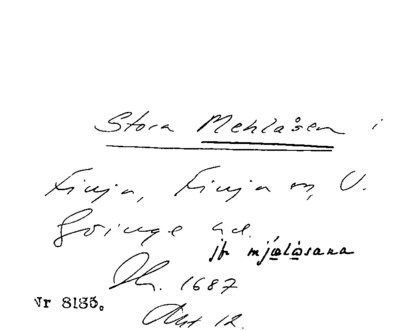 Stora Mehlåsen i
Finja, Finja sn, V.
Göinge hd.
jfr mjølåsana
1687
Nr 8135.
Akt 12.